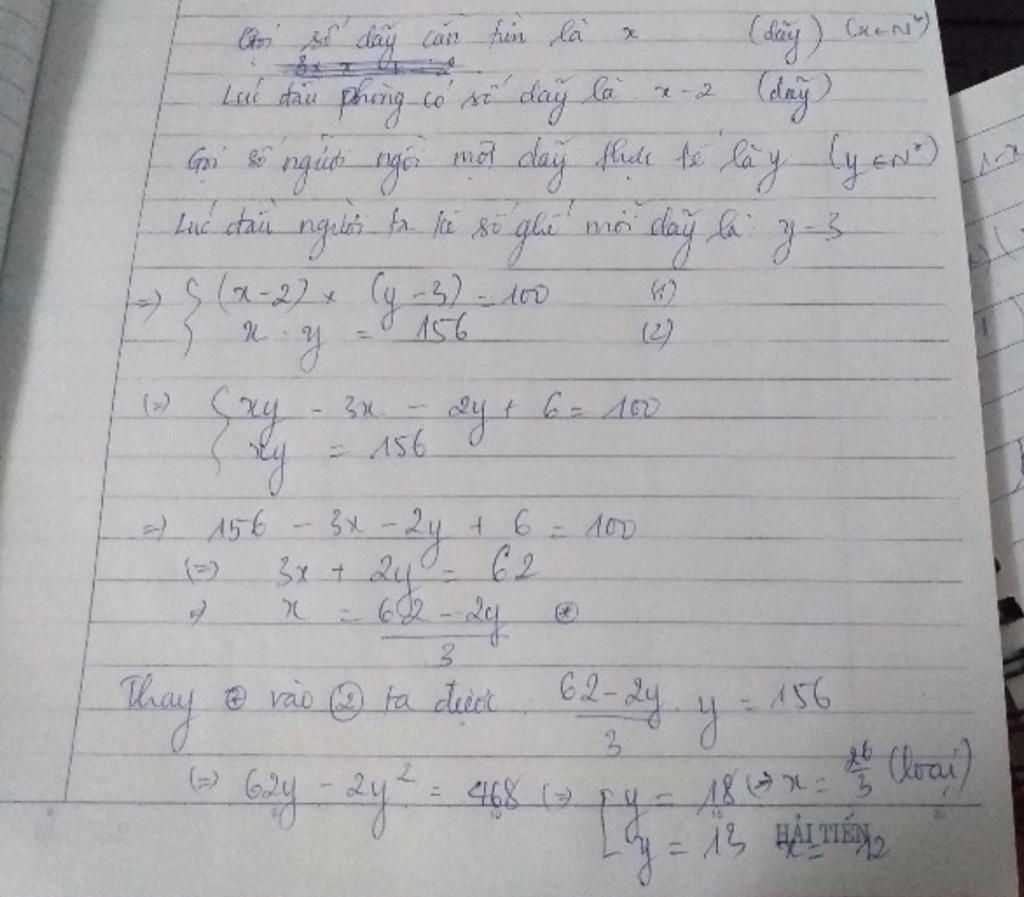 Gọi số dãy cần tìm là x (dãy) (x∈N*)
Lúc đầu phòng có số dãy là x-2 (dãy)
Gọi số người ngồi một dãy thực tế là y (y∈N*)
Lúc đầu người ta kê số ghế mỗi dãy là y-3
=> { (x-2) × (y-3) = 100 (1)
x . y = 156 (2)
(=> { xy - 3x - 2y + 6 = 100
xy = 156
=> 156 - 3x - 2y + 6 = 100
(=> 3x + 2y = 62
=> x = (62 - 2y)/3 (*)
Thay (*) vào (2) ta được (62 - 2y)/3 . y = 156
(=> 62y - 2y² = 468 (=> [ y = 18 (=> x = 26/3 (loại)
y = 13 x = 12
HẢI TIẾN